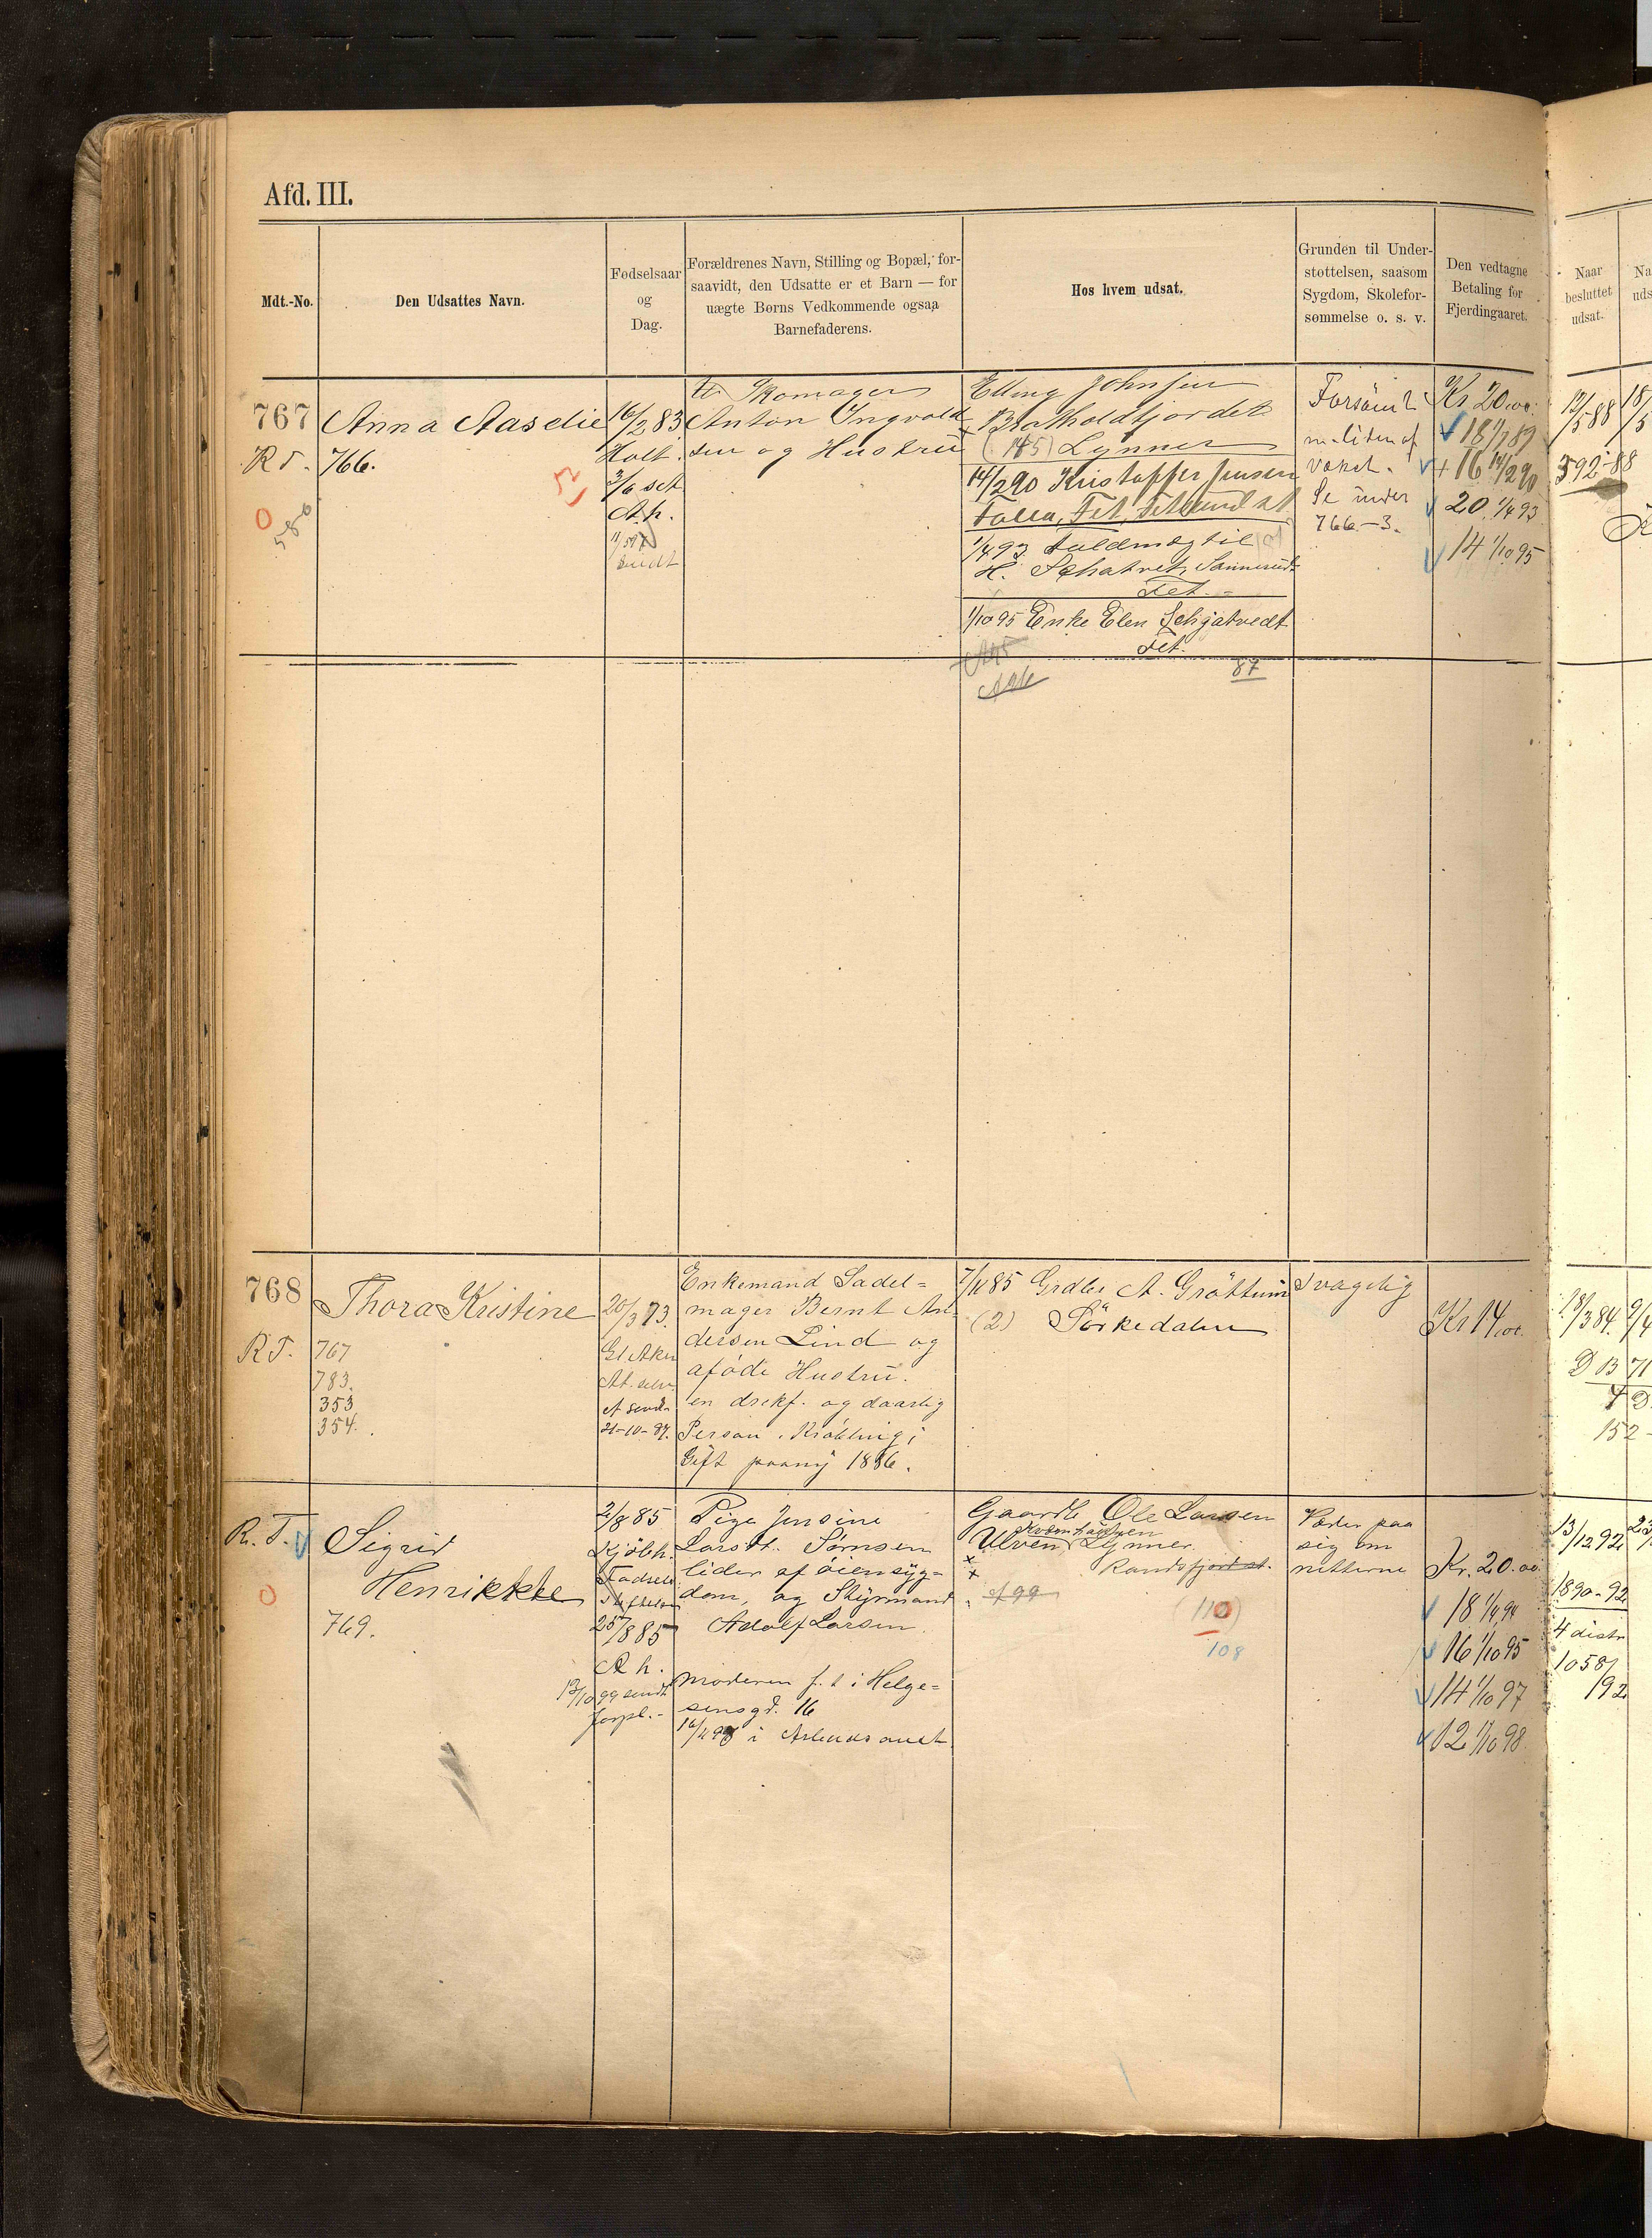 Afd. III.
Mdt.-No.
Den Udsattes Navn.
Fødselsaar
og
Dag.
Forældrenes Navn, Stilling og Bopæl, for-
saavidt, den Udsatte er et Barn — for
uægte Børns Vedkommende ogsaa
Barnefaderens.
Hos hvem udsat.
Grunden til Under-
støttelsen, saasom
Sygdom, Skolefor-
sømmelse o. s. v.
Den vedtagne
Betaling for
Fjerdingaaret.
Naar
besluttet
udsat.
Na
uds
767
R T.
0
586
Anna Aaselie
766.
16/2 83
Holt.
Skomager
Anton Ingvold-
sen og Hustru
Elling Johnsen
Bratholdfjordet
(185) Lynner
14/2 90 Kristoffer Jensen
Falla, Fet, Fetsund st
1/4 93 Fuldmægtil
H. Schatvet, Sannerud
Fet.
1/10 95 Enke Elen Schjatvedt
Fet.
87
Forsömt
m. liden af
væxt.
Se under
766-3.
Kr 20,00.
18 1/7 89
16 14/2 90
20. 1/4 93
14 1/10 95
12/5 88
392-88
768
R T.
Thora Kristine
767
783.
353
354.
20/3 73.
Gl Aker
At. selv.
21-10-87.
Enkemand Sadel-
mager Bernt An-
dersen Lind og
aføde Hustru.
en drekf. og daarlig
Person. Krøbling i
Gift paany 1886.
Grdbr A. Gröttum
(2) Sörkedalen
Svagelig
Kr 14,00.
18/3 84.
152
R. T.
0
Sigrid
Henrikke
769.
2/8 85
Kjöbh.
25/8 85
13/10 99 sendt
forpl.
Pige Jensine
Larsdt. Sörnsen
lider af öiensyg-
dom, og Styrmand
Adolf Larsen.
Moderen f. t i Helge-
sensgd. 16
i Arbeidsanst
Gaardb Ole Larsen
Ulven Lynner.
Randsfjord st.
(110)
108
Væder paa
sig om
netterne
Kr. 20.00
18 1/4 94
16 1/10 95
14 1/10 97
12 1/10 98
13/12 92
1890-92
4 distr
1058/
192